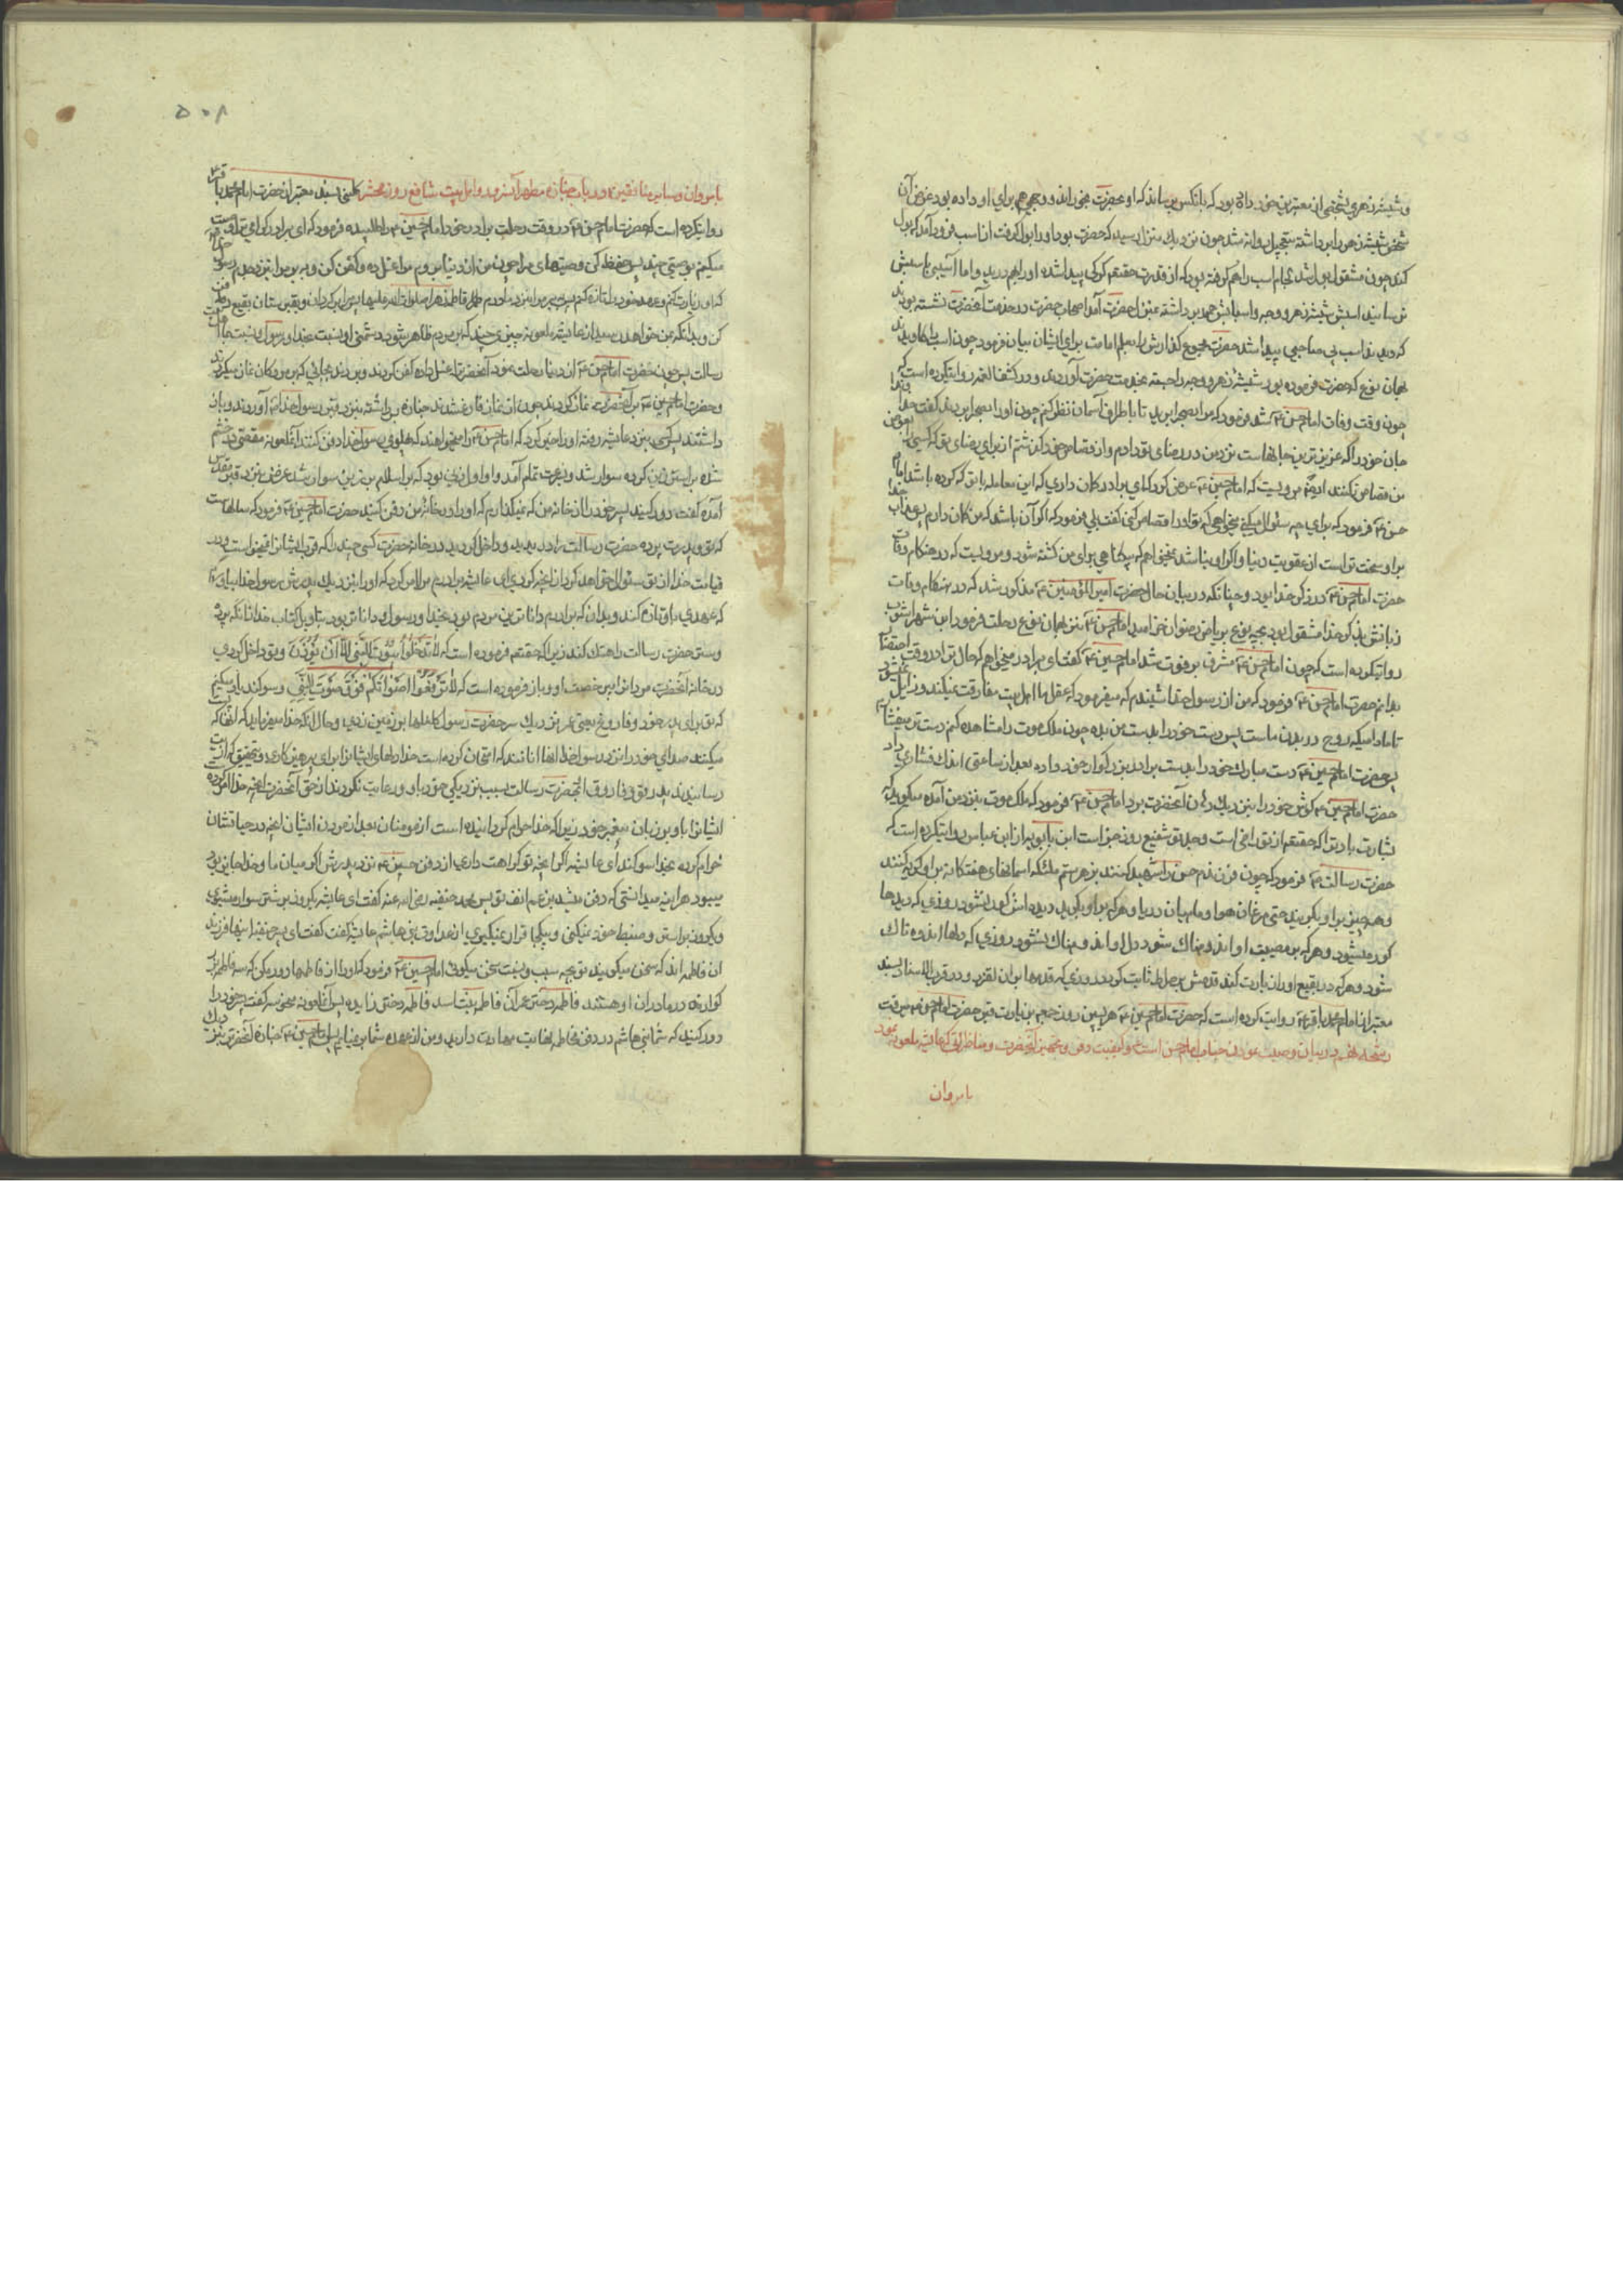 و شیشه زهری بشخصی از معتبرین خود داده بود که بانکس برساند که او عضرت بخوراند و وجهی هم برای او داده بود عوض آن
شخص شیشه زهر را برداشته بتعجیل روانه شد چون نزدیک بمنزل رسید که حضرت بود او را بول گرفت از اسب فرود آمد که بول
کند چون مشغول بول شد لجام اسب را هم گرفته بود که از قدرت حقتعم کرکی پیدا شده او را بهم درید و اما آسیبی باسبش
نرسانید اسبش شیشه زهر و وجه و اسبابش همه برداشته بمنزل حضرت آمد اصحاب حضرت در خدمت آنحضرت نشسته بودند
که دیدند اسب بی صاحبی پیدا شد حضرت مجموع گذارش را بعلم امامت برای ایشان بیان فرمود چون اسب را کاویدند
بهمان نوع که حضرت فرموده بود شیشه زهر و وجه را جسته بخدمت حضرت آوردند و در کشف الغمه روایتکرده است که
چون وقت وفات امام حسن ع شد فرمود که مرا بصحرا برید تا باطراف آسمان نظر کنم چون او را بصحرا بردند گفت خداوندا
جان خود را که عزیزترین جانهاست نزد من در رضای تو دادم و از قصاص خود گذشتم از برای رضای تو که کسی را بعوض
من قصاص نکنند ایضا مرویست که امام حسین ع عرض کرد که ای برادر گمان داری که این معامله با تو که کرده باشد امام
حسن ع فرمود که برای چه سئوال میکنی میخواهی که تو او را قصاص کنی گفت بلی فرمود که اگر آن باشد که من گمان دارم پس عذاب خدا
بر او سخت تر است از عقوبت دنیا و اگر او نباشد نمیخواهم که بیگناهی برای من کشته شود و مرویست که در هنگام وفات
حضرت امام حسن ع در ذکر خدا بود و چنانکه در بیان حال حضرت امیرالمؤمنین ع مذکور شد که در هنگام وفات
زبانش بذکر خدا مشغول بود بچه نوع بریاض رضوان خرامید امام حسن ع نیز بهمان نوع رحلت فرمود ابن شهرآشوب
روایتکرده است که چون امام حسن ع مشرف بر فوت شد امام حسین ع گفت ای برادر میخواهم که حال ترا در وقت احتضار
بدانم حضرت امام حسن ع فرمود که من از رسول خدا شنیدم که میفرمود که عقل ما اهل بیت مفارقت نمیکند و زایل نمیشود
تا مادامیکه روح در بدن ماست پس دست خود را بدست من بده چون ملک موت را مشاهده کنم دست ترا میفشارم
پس حضرت امام حسین ع دست مبارک خود را بدست برادر بزرگوار خود داده بعد از ساعتی اندک فشاری داد
حضرت امام حسین ع گوش خود را بنزدیک دهن آنحضرت برد امام حسن ع فرمود که ملک موت بنزد من آمده میگوید که
بشارت باد ترا که حقتعم از تو راضی است و جد تو شفیع روز جزاست ابن بابویه از ابن عباس روایتکرده است که
حضرت رسالت ص فرمود که چون فرزندم حسن را شهید کنند بزهر ستم ملائکه آسمانهای هفتگانه بر او گریه کنند
و همه چیز بر او بگریند حتی مرغان هوا و ماهیان دریا و هر که بر او بگرید دیده اش کور نشود روزی که دیدها
کور میشود و هر که بر مصیبت او اندوهناک شود دل او اندوهناک نشود روزی که دلها اندوه ناک
شود و هر که در بقیع او را زیارت کند قدمش بر صراط ثابت گردد روزی که قدمها بر آن لغزد و در قرب الاسناد بسند
معتبر از امام محمد باقر ع روایت کرده است که حضرت امام حسین ع هر پسین روز جمعه بزیارت قبر حضرت امام حسن ع میرفت
رشحه دهم در بیان وصیت نمودن جناب امام حسن است و کیفیت دفن و تجهیز آنحضرت و مناظراتی که عایشه ملعونه نمود
بامروان
۵۰۸
بامروان و سایر منافقین در باب جنازه مطهر آنسرور و اهل بیت شافع روز محشر کلینی بسند معتبر از حضرت امام محمد باقر ع
روایتکرده است که حضرت امام حسن ع در وقت رحلت برادر خود امام حسین ع را طلبیده فرمود که ای برادر گرامی ترا وصیت
میکنم بوصیتی چند پس حفظ کن وصیتهای مرا چون من از دنیا بروم مرا غسل ده و کفن کن و ببر مرا بنزد جدم رسول خدا
که او را زیارت کنم و عهد خود را تازه کنم پس ببر مرا بنزد مادرم فاطمه زهرا صلوات الله علیها پس مرا برگردان و بقبرستان بقیع دفن
کن و بدانکه بمن خواهد رسید از عایشه ملعونه چیزی چند که بر مردم ظاهر شود دشمنی او نسبت بخدا و رسول و نسبت بما اهل بیت
رسالت پس چون حضرت امام حسن ع از دنیا رحلت نمود آنحضرت را غسل داده کفن کردند و بردند بجائی که بر مردگان نماز میکردند
و حضرت امام حسین ع بر آنحضرت نماز کرد بعد چون از نماز فارغ شدند جنازه برداشته بنزد قبر رسول خدا ص آوردند و باز
داشتند پس کسی بنزد عایشه رفته او را خبر کرد که امام حسن ع را میخواهند که پهلوی رسول خدا دفن کنند آنملعونه مقصود خشم
شده بر استر زین کرده سوار شد و بسرعت تمام آمد و او اول زنی بود که در اسلام بر زین سوار شد غرض بنزد قبر مقدس
آمده گفت دور کنید پسر خود را از خانه من که نمیگذارم که او را در خانه من دفن کنید حضرت امام حسین ع فرمود که سالهاست
که تو و پدرت پرده حضرت رسالت را دریدید و داخل کردید در خانه حضرت کسی چند را که قرب ایشانرا نمیخواست و در
قیامت خدا از تو سئوال خواهد کرد از آنچه کردی ای عایشه برادرم مرا امر کرد که او را بنزدیک پدرش رسول خدا بیاورم
که عهدی باو تازه کند و بدان که برادرم داناترین مردم بود بخدا و رسول و داناتر بود بتاویل کتاب خدا از آنکه پرده
و ستر حضرت رسالت را هتک کند زیرا که حقتعم فرموده است که لا تدخلوا بیوت النبی الا ان یؤذن و تو داخل کردی
در خانه آنحضرت مردانرا بی رخصت او و باز فرموده است که لا ترفعوا اصواتکم فوق صوت النبی و سوگند یاد میکنم
که تو برای پدر خود و فاروغ یعنی عمر نزدیک سر حضرت رسول کلنگها بر زمین زدی و حال آنکه خدا میفرماید که آنها که پست
میکنند صدای خود را نزد رسول خدا آنها آنانند که امتحان کرده است خدا دلهای ایشانرا برای پرهیزکاری و بتحقیق که آزار
رسانیدند پدر تو و فاروق آنحضرت رسالت بسبب نزدیکی خود باو و رعایت نکردند از حق آنحضرت آنچه خدا امر کرده
ایشانرا باو بر زبان پیغمبر خود زیرا که خدا حرام گردانیده است از مومنان بعد از مردن ایشان آنچه در حیاتشان
حرام کرده بخدا سوگند ای عایشه اگر آنچه تو کراهت داری از دفن حسن ع نزد پدرش اگر میان ما و خدا جایز بود
میبود هر آینه میدانستی که دفن میشد بر رغم انف تو پس محمد حنفیه رضی الله عنه گفت ای عایشه یکروز بر شتر سوار میشوی
و یکروز بر استر و ضبط خود نمیکنی و بیکجا قرار نمیگیری از عداوت بنی هاشم عایشه گفت گفت ای پسر حنفیه اینها فرزند
ان فاطمه اند که سخن میگویند تو بچه سبب و نسبت سخن میگوئی امام حسین ع فرمود که او را از فاطمها دور مکن که سه فاطمه بزرگ
گوار ند در مادران او هستند فاطمه دختر عمران فاطمه بنت اسد فاطمه دختر زایده پس آنملعونه بحضرت گفت پسر خود را
دور کنید که شما بنی هاشم در دفن فاطمه نهایت مهارت دارید و من از عهده شما برنمیایم پس امام حسین ع جنازه آنحضرت بنزدیک